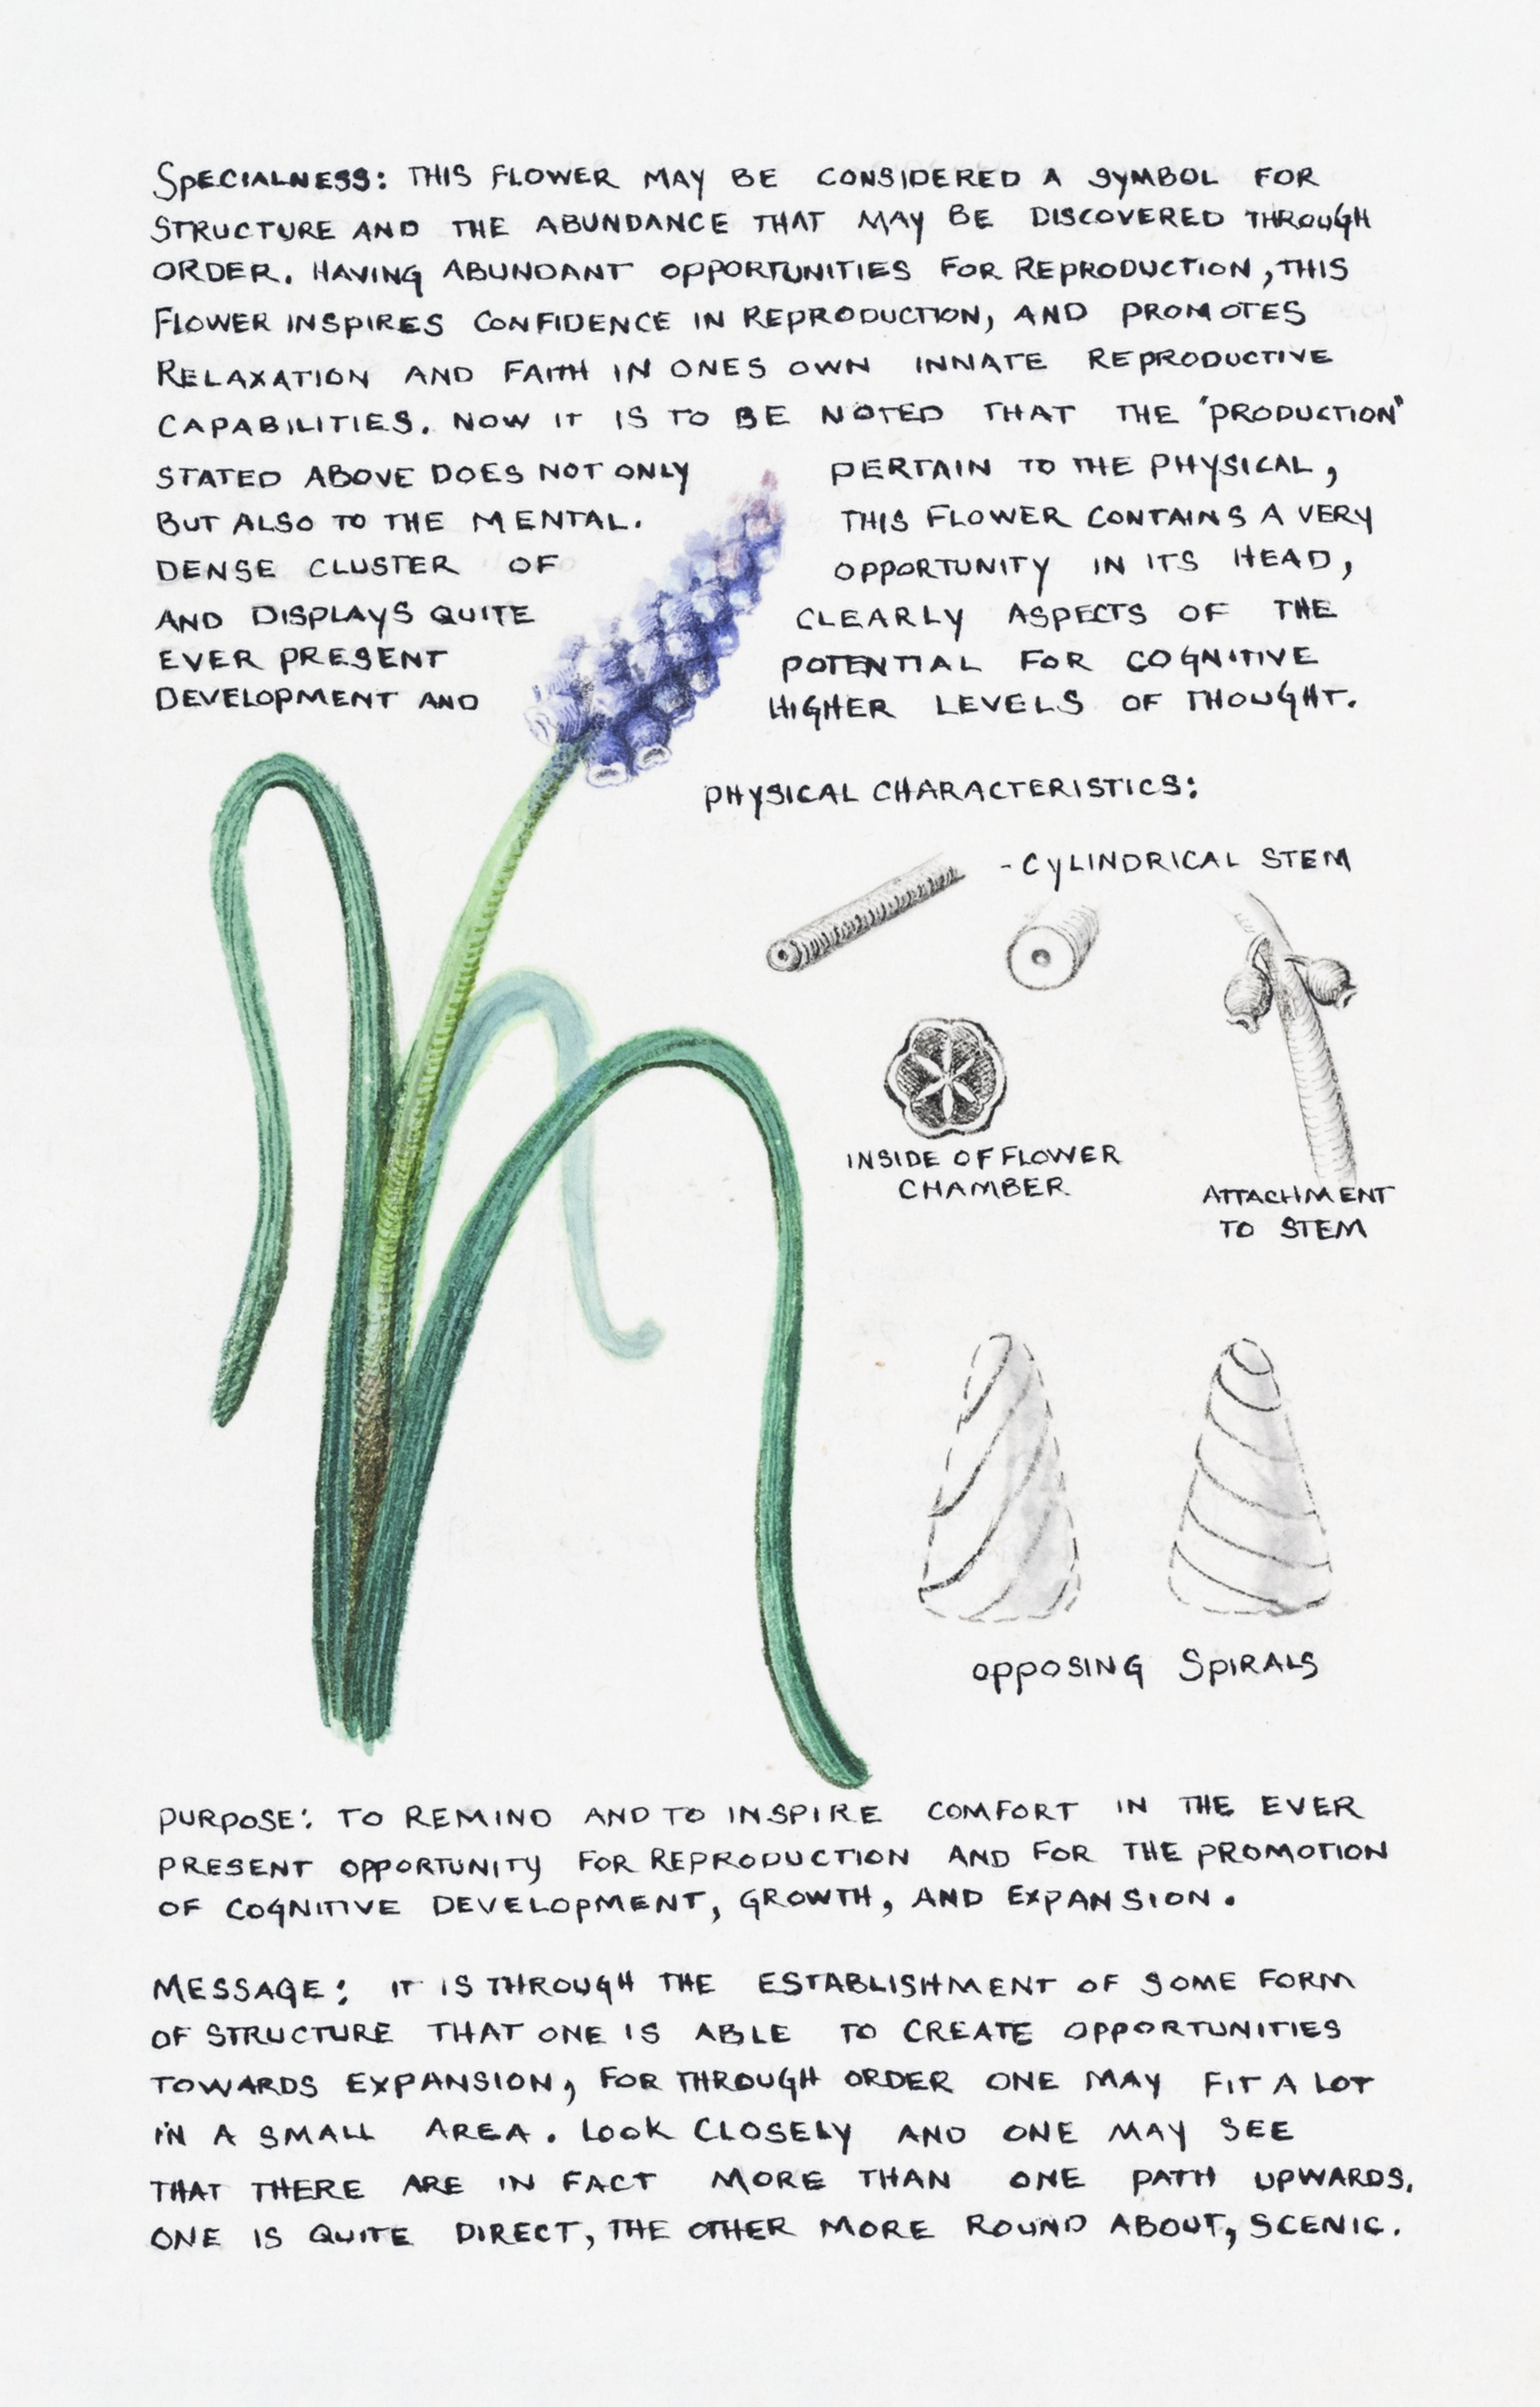 SPECIALNESS: THIS FLOWER MAY BE CONSIDERED A SYMBOL FOR
STRUCTURE AND THE ABUNDANCE THAT MAY BE DISCOVERED THROUGH
ORDER. HAVING ABUNDANT OPPORTUNITIES FOR REPRODUCTION, THIS
FLOWER INSPIRES CONFIDENCE IN REPRODUCTION, AND PROMOTES
RELAXATION AND FAITH IN ONES OWN INNATE REPRODUCTIVE
CAPABILITIES. NOW IT IS TO BE NOTED THAT THE "PRODUCTION"
STATED ABOVE DOES NOT ONLY PERTAIN TO THE PHYSICAL,
BUT ALSO TO THE MENTAL. THIS FLOWER CONTAINS A VERY
DENSE CLUSTER OF OPPORTUNITY IN ITS HEAD,
AND DISPLAYS QUITE CLEARLY ASPECTS OF THE
EVER PRESENT POTENTIAL FOR COGNITIVE
DEVELOPMENT AND HIGHER LEVELS OF THOUGHT.
PHYSICAL CHARACTERISTICS:
- CYLINDRICAL STEM
INSIDE OF FLOWER
CHAMBER
ATTACHMENT
TO STEM
OPPOSING SPIRALS
PURPOSE: TO REMIND AND TO INSPIRE COMFORT IN THE EVER
PRESENT OPPORTUNITY FOR REPRODUCTION AND FOR THE PROMOTION
OF COGNITIVE DEVELOPMENT, GROWTH, AND EXPANSION.
MESSAGE: IT IS THROUGH THE ESTABLISHMENT OF SOME FORM
OF STRUCTURE THAT ONE IS ABLE TO CREATE OPPORTUNITIES
TOWARDS EXPANSION, FOR THROUGH ORDER ONE MAY FIT A LOT
IN A SMALL AREA. LOOK CLOSELY AND ONE MAY SEE
THAT THERE ARE IN FACT MORE THAN ONE PATH UPWARDS.
ONE IS QUITE DIRECT, THE OTHER MORE ROUND ABOUT, SCENIC.